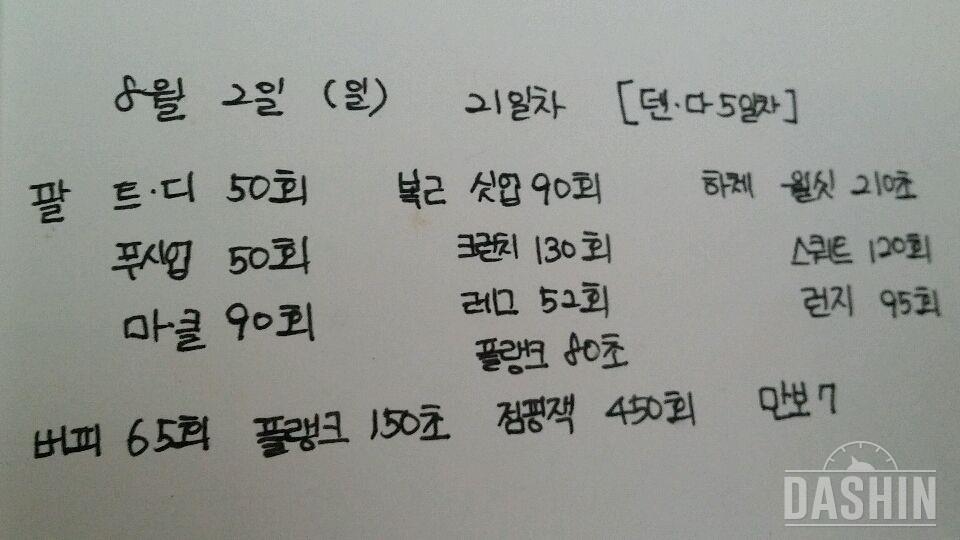 8월 2일 (일) 21일차 [덴·다 5일차]
팔 트·디 50회 복근 싯업 90회 하체 월싯 210초
푸시업 50회 크런치 130회 스쿼트 120회
마·클 90회 레그 52회 런지 95회
플랭크 80초
버피 65회 플랭크 150초 점핑잭 450회 만보 7
DASHIN